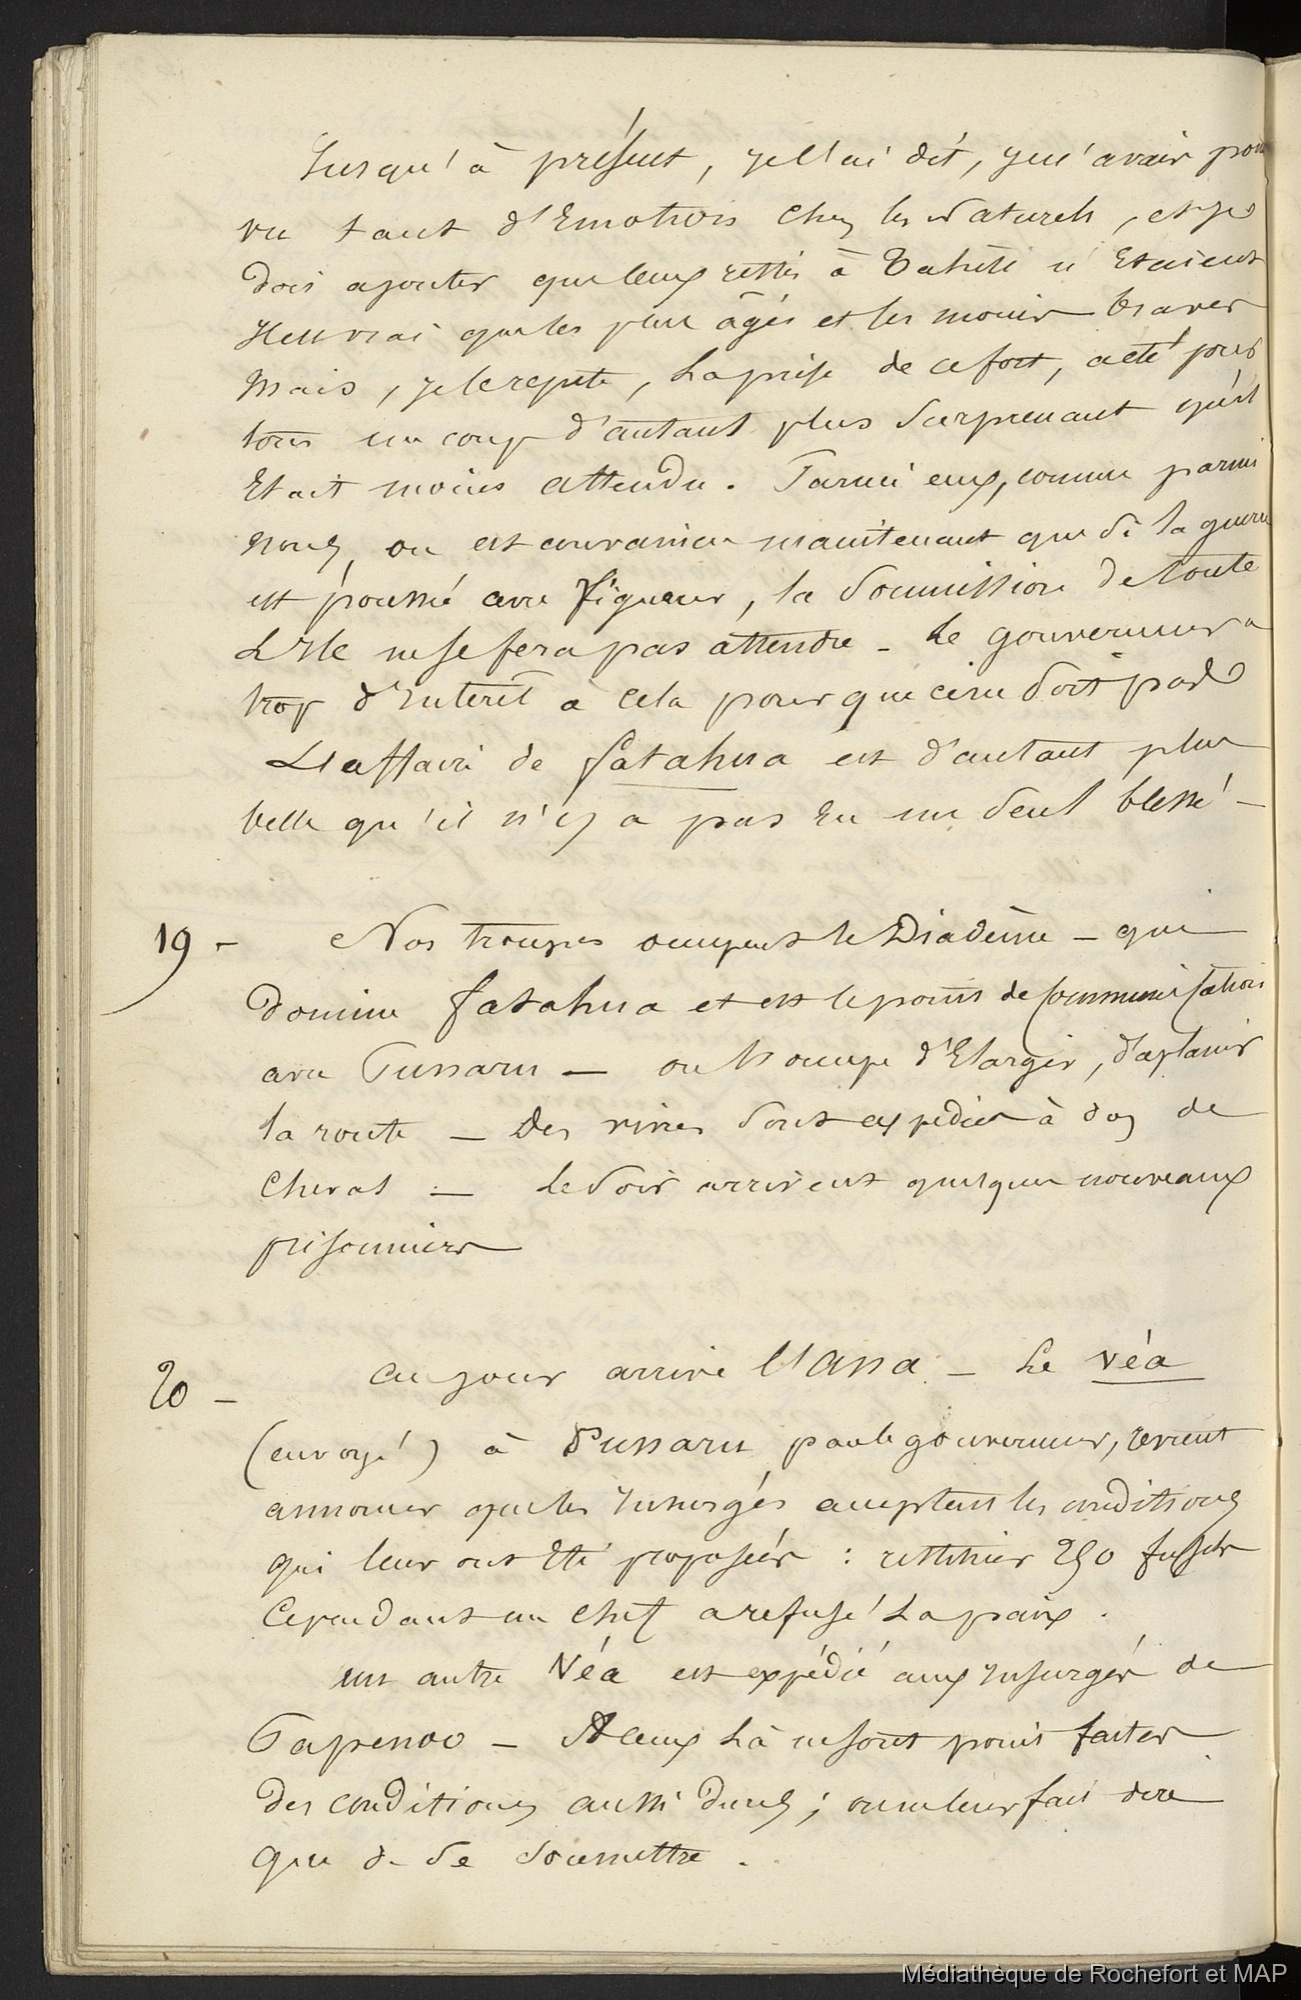 Jusqu'à présent, je l'ai dit, je n'avais point
vu tant d'Emotions chez les Naturels, et je
dois ajouter que ceux restés à Tahiti n'Etaient
Il est vrai que les plus âgés et les moins braves
Mais, je le repete, La prise de ce fort, a eté pour
tous un coup d'autant plus surprenant qu'il
Etait moins attendu. Parmi eux, comme parmi
nous, on est convaincu maintenant que si la guerre
est poussée avec vigueur, la soumission de toute
L'Ile ne se fera pas attendre - Le gouverneur a
trop d'Interêt à cela pour que ce ne soit pas
L'affaire de fatahua est d'autant plus
belle qu'il n'y a pas Eu un seul blessé -
19 - Nos troupes occupent le Diadème - qui
domine fatahua et est le point de communication
avec Punaru - on s'occupe d'Elargir, d'applanir
la route - Des vivres sont expediés à dos de
cheval - Le soir arrivent quelques nouveaux
prisonniers
20 - Au jour arrive l'Ana - Le véa
(envoyé) à Punaru par le gouverneur, revient
annoncer que les Insurgés acceptent les conditions
qui leur ont Eté proposées : restituer 250 fusils
Cependant un chef a refusé La paix.
un autre Véa est expédié aux Insurgés de
Papenoo - A ceux Là ne sont point faites
des conditions aussi dures ; on ne leur fait dire
que de se soumettre.
Médiathèque de Rochefort et MAP